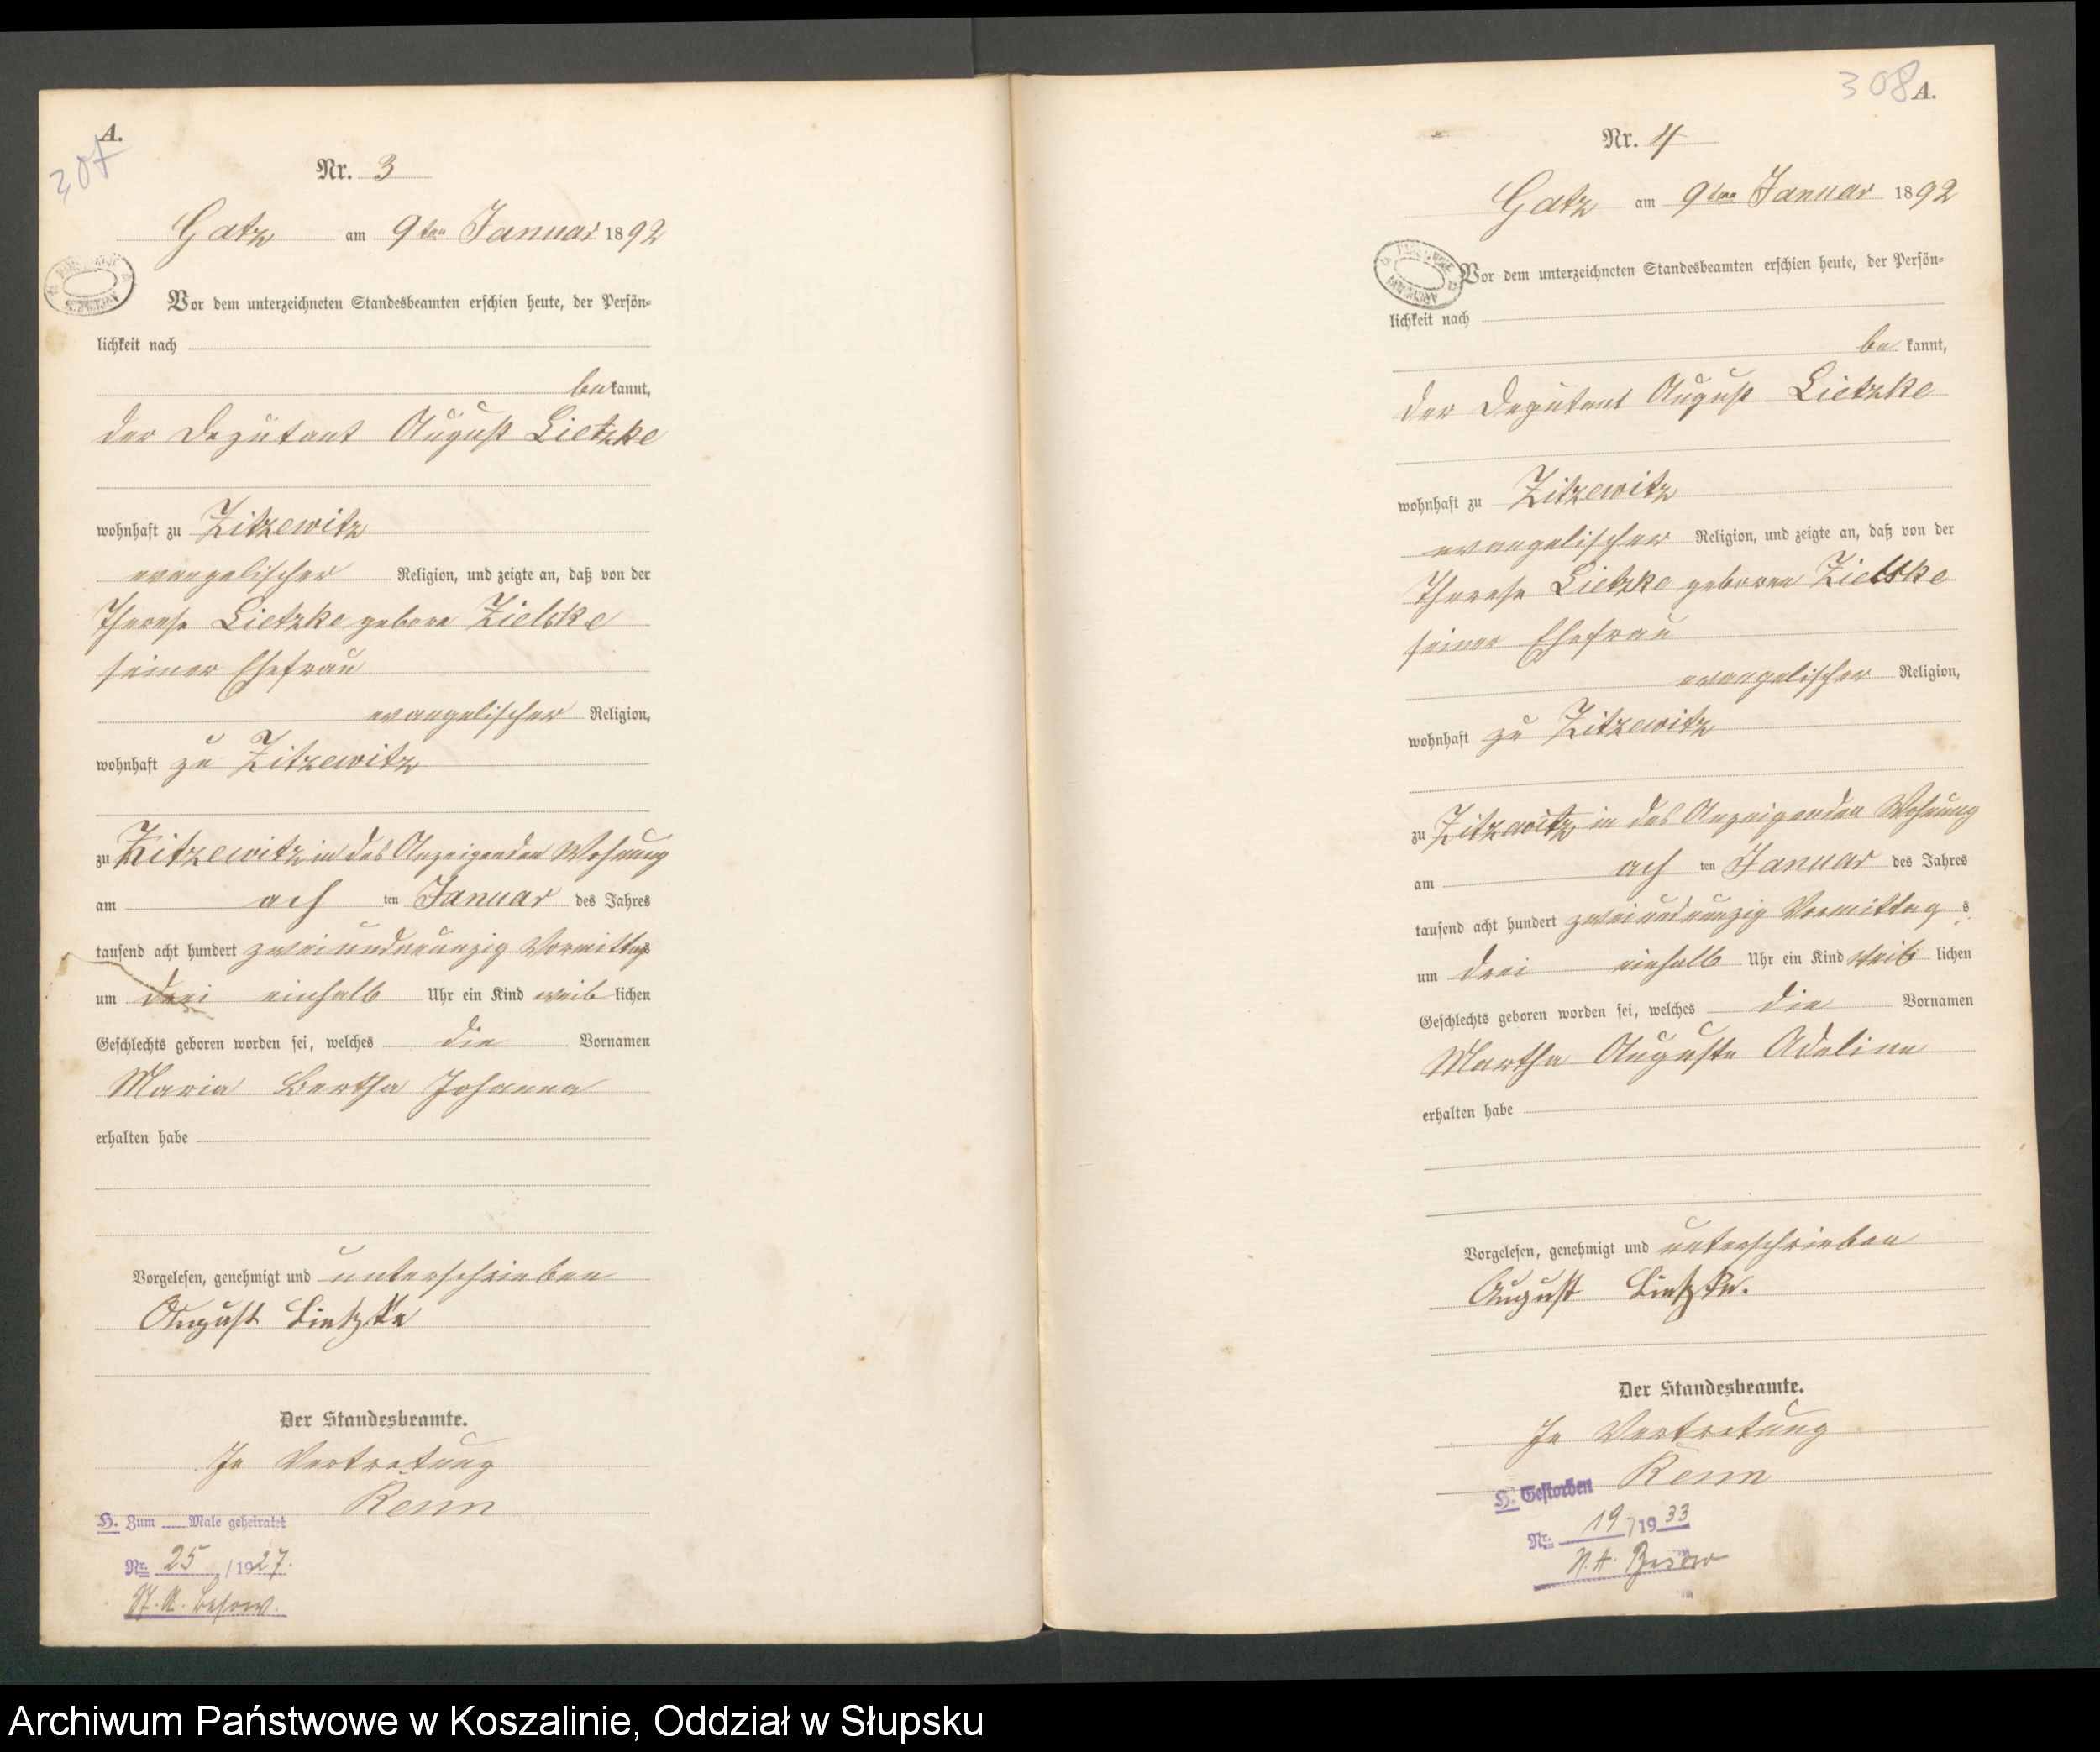 A.
307
Nr. 3
Gatz am 9ten Januar 1892
Vor dem unterzeichneten Standesbeamten erschien heute, der Persön-
lichkeit nach
be kannt,
der Deputant August Lietzke
wohnhaft zu Zitzewitz
evangelischer Religion, und zeigte an, daß von der
Therese Lietzke geborn Zielske
seiner Ehefrau
evangelischer Religion,
wohnhaft zu Zitzewitz
zu Zitzewitz in des Anzeigenden Wohnung
am ach ten Januar des Jahres
tausend acht hundert zweiundneunzig Vormittags
um drei einhalb Uhr ein Kind weib lichen
Geschlechts geboren worden sei, welches die Vornamen
Maria Bertha Johanna
erhalten habe
Vorgelesen, genehmigt und unterschrieben
August Lietzke
Der Standesbeamte.
In Vertretung
H. Zum Male geheiratet
Nr. 25 /1927.
St. A. Besow.
308 A.
Nr. 4
Gatz am 9ten Januar 1892
Vor dem unterzeichneten Standesbeamten erschien heute, der Persön-
lichkeit nach
be kannt,
der Deputant August Lietzke
wohnhaft zu Zitzewitz
evangelischer Religion, und zeigte an, daß von der
Therese Lietzke geborne Zielske
seiner Ehefrau
evangelischer Religion,
wohnhaft zu Zitzewitz
zu Zitzewitz in des Anzeigenden Wohnung
am ach ten Januar des Jahres
tausend acht hundert zweiundneunzig Vormittag s
um drei einhalb Uhr ein Kind weib lichen
Geschlechts geboren worden sei, welches die Vornamen
Martha Auguste Adeline
erhalten habe
Vorgelesen, genehmigt und unterschrieben
August Lietzke.
Der Standesbeamte.
In Vertretung
H. Gestorben
Nr. 19 /1933
Besow
Archiwum Państwowe w Koszalinie, Oddział w Słupsku